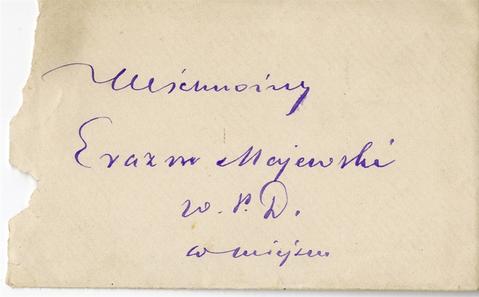 Wielmożny
Erazm Majewski
w. P. D.
w miejscu